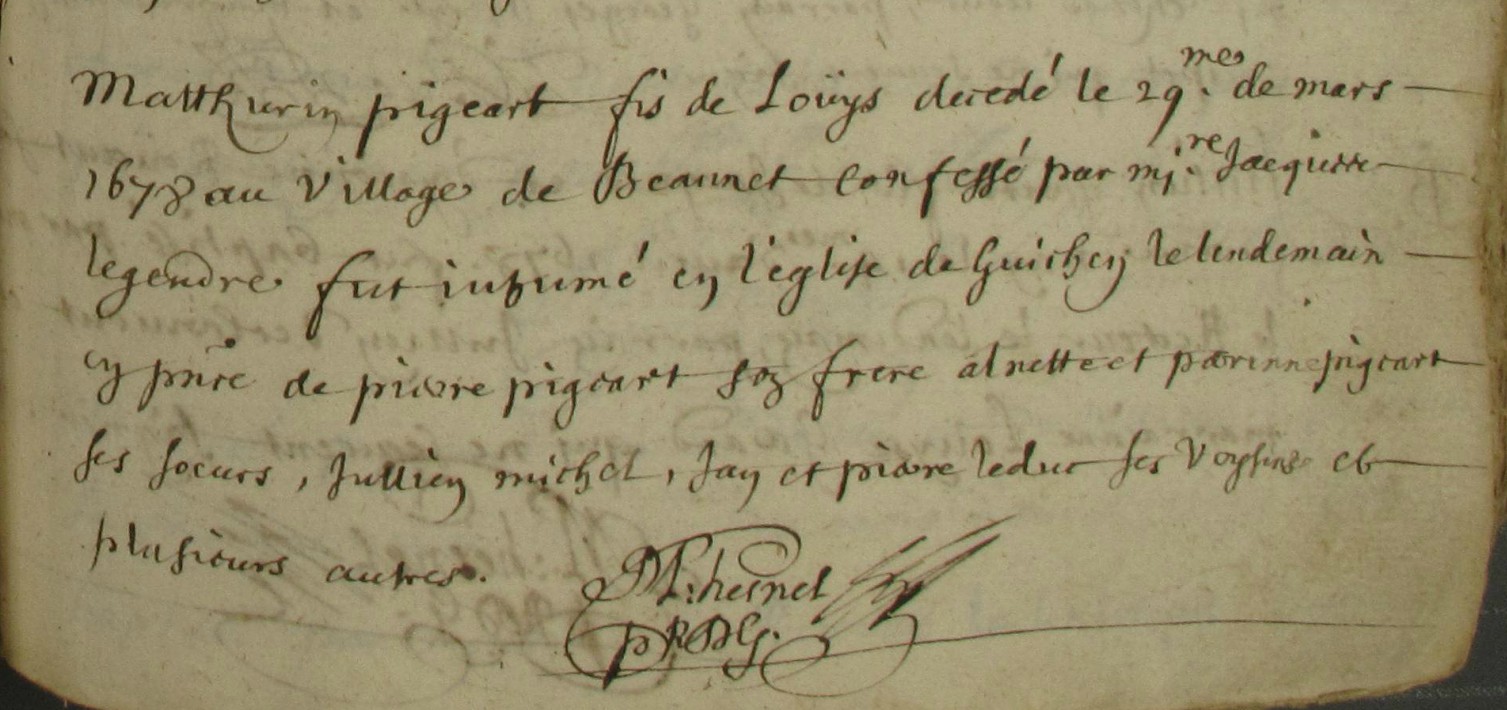 Matthurin pigeart fis de Loüys decedé le 29.me de mars
1678 au village de Beaunet confessé par mi.re Jacques
legendre fut inhumé en l'eglise de Guichen le lendemain
en pnce de pierre pigeart son frere alnette et perrinne pigeart
ses soeurs, Jullien michel, Jan et pierre leduc ses voysins et
plusieurs autres.
M: hesnel
p R D G.